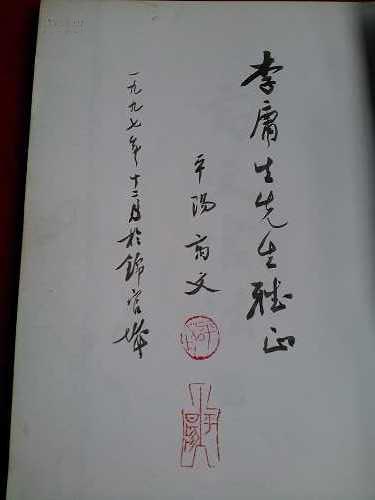 李庸生先生雅正
平阳 文
一九九七年十二月於錦官城